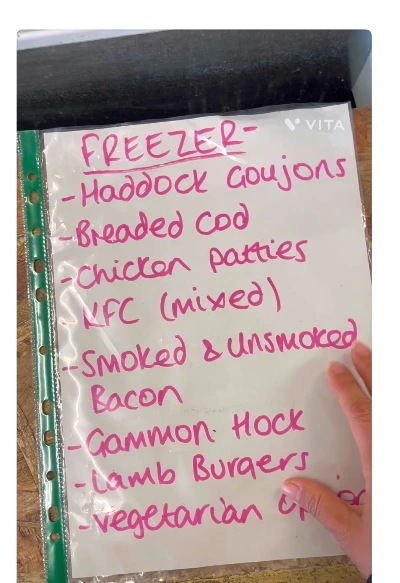 VITA
FREEZER-
-Haddock Goujons
-Breaded Cod
-Chicken patties
KFC (mixed)
-Smoked & Unsmoked
Bacon
-Gammon Hock
-Lamb Burgers
-Vegetarian